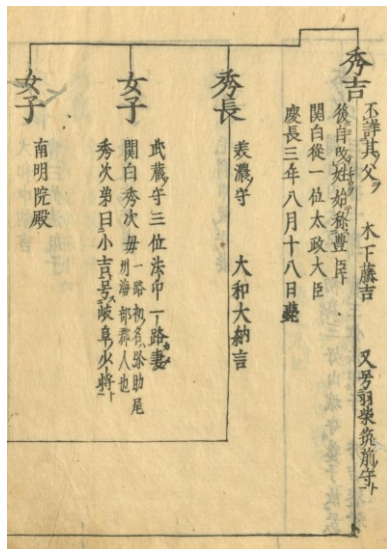 秀吉
不詳其父ヲ 木下藤吉 又号羽柴筑前守ト
後自改姓ヲ始称豊臣ト
関白従一位太政大臣
慶長三年八月十八日薨
秀長
美濃守 大和大納言
女子
武蔵守三位法印一路妻
関白秀次母 一路初名弥助尾
州海部郡人也
秀次弟曰小吉号岐阜少将ト
女子
南明院殿